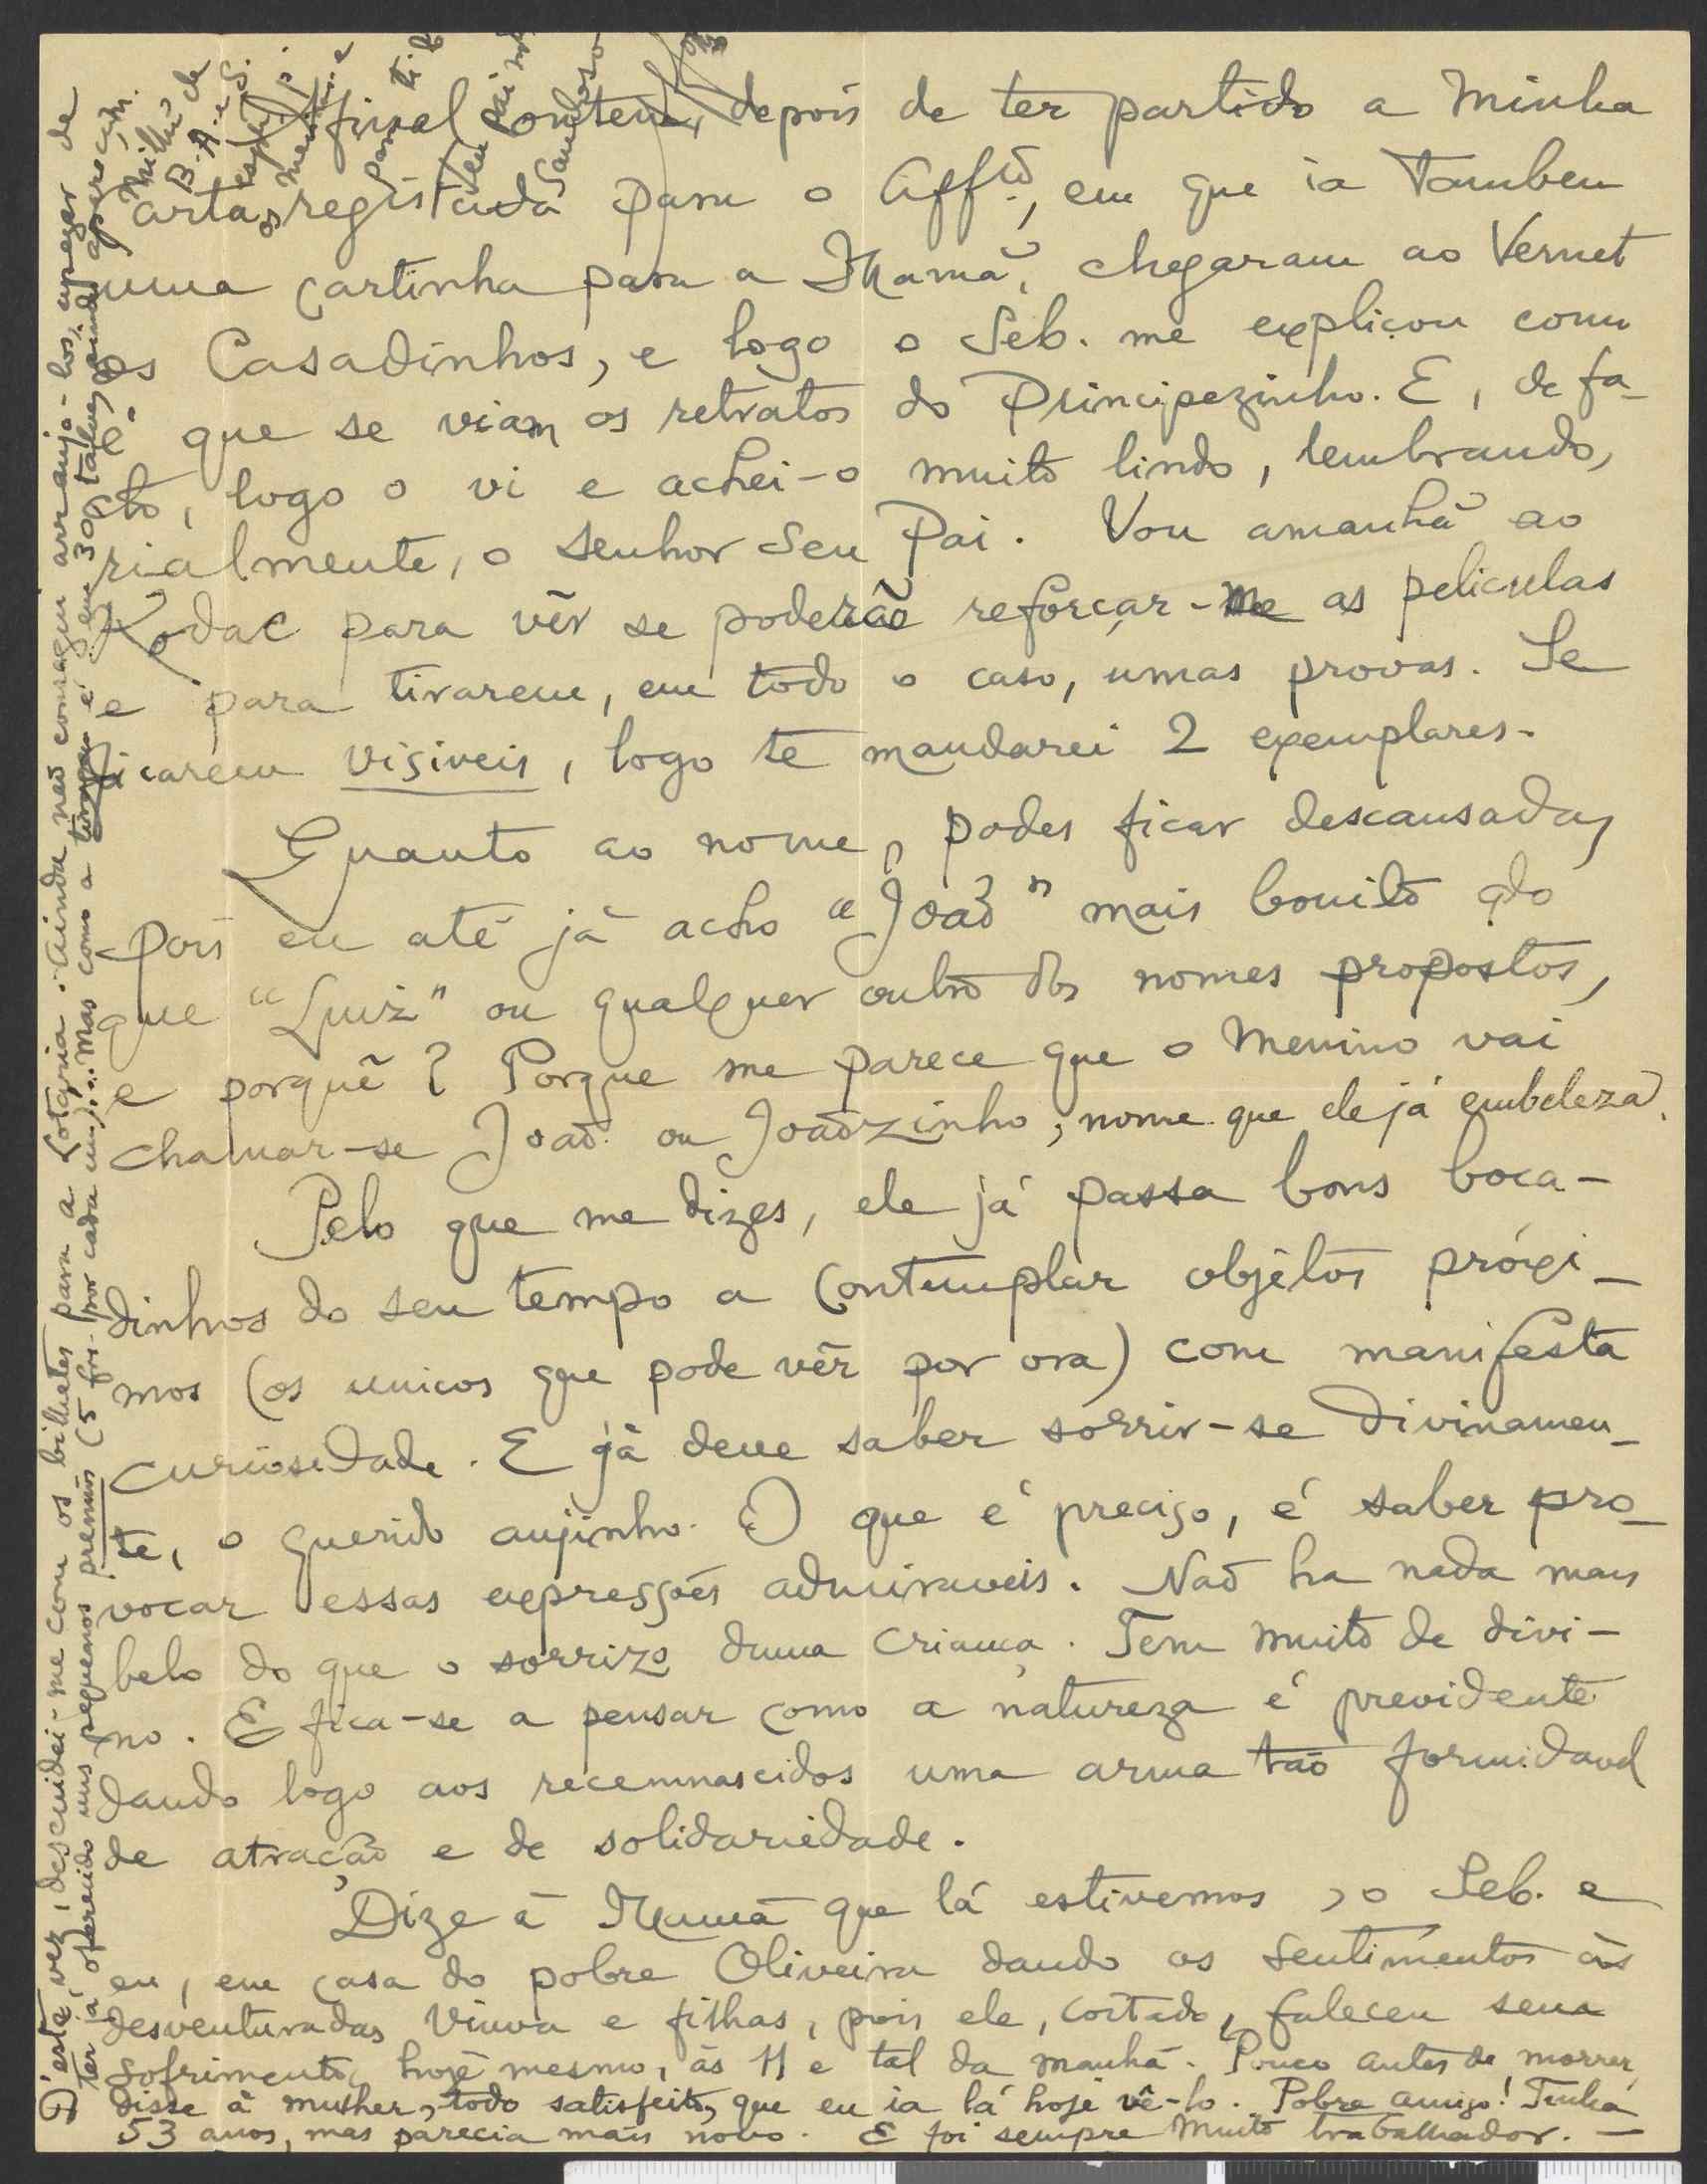 Afinal ontem, depois de ter partido a minha
carta registada para o Affº, em que ia tambem
uma cartinha para a Mamã, chegaram ao Vernet
os Casadinhos, e logo o Seb. me explicou como
é que se viam os retratos do Principezinho. E, de fa-
cto, logo o vi e achei-o muito lindo, lembrando,
rialmente, o senhor seu Pai. Vou amanhã ao
Kodac para vêr se poderão reforçar-me as peliculas
e para tirarem, em todo o caso, umas provas. Se
ficarem visiveis, logo te mandarei 2 exemplares.
Quanto ao nome, podes ficar descansada,
pois eu até já acho "João" mais bonito do
que "Luiz" ou qualquer outro dos nomes propostos,
e porquê? Porque me parece que o Menino vai
chamar-se João ou Joãozinho, nome que ele já embeleza.
Pelo que me dizes, ele já passa bons boca-
dinhos do seu tempo a contemplar objétos próxi-
mos (os unicos que pode vêr por ora) com manifesta
curiosidade. E já deve saber sorrir-se divinamen-
te, o querido anjinho. O que é preciso, é saber pro-
vocar essas expressões admiraveis. Não ha nada mais
belo do que o sorrizo duma criança. Tem muito de divi-
no. E fica-se a pensar como a natureza é previdente
dando logo aos recemnascidos uma arma tão formidavel
de atração e de solidariedade.
Dize á Mamã que lá estivemos, o Seb. e
eu, em casa do pobre Oliveira dando os sentimentos ás
desventuradas viuva e filhas, pois ele, coitado, faleceu sem
sofrimento, hoje mesmo, ás 11 e tal da manhã. Pouco antes de morrer,
disse á mulher, todo satisfeito, que eu ia lá hoje vê-lo. Pobre amigo! Tinha
53 anos, mas parecia mais novo. E foi sempre muito trabalhador. —
D'esta vez, descuidei-me com os bilhetes para a Lotaria. Ainda não consegui arranjá-los, apezar de
ter já oferecido uns pequenos premios (5 frs. por cada um)... Mas como a tiragem é em 30, talvez ainda apareçam.
Mil
B. A. e S. de
os
para ti
Teu Pai
Saudoso